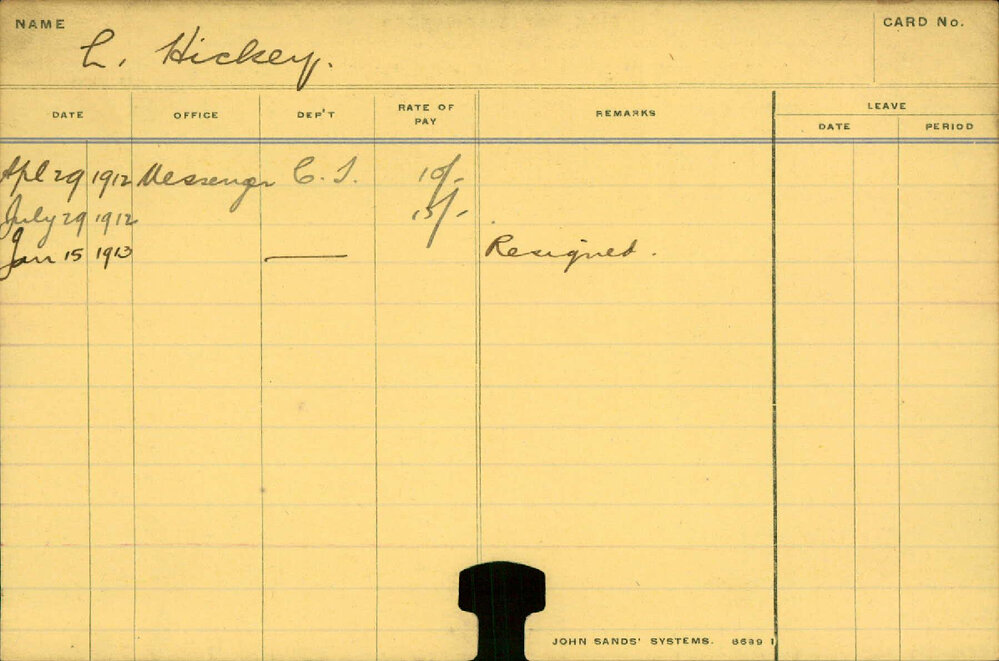 NAME
L. Hickey.
CARD No.
DATE OFFICE DEP'T RATE OF PAY REMARKS LEAVE
DATE PERIOD
Apl 29 1912 Messenger C. S. 10/-
July 29 1912 15/-
Jan 15 1913 — Resigned.
JOHN SANDS' SYSTEMS. 6689 1